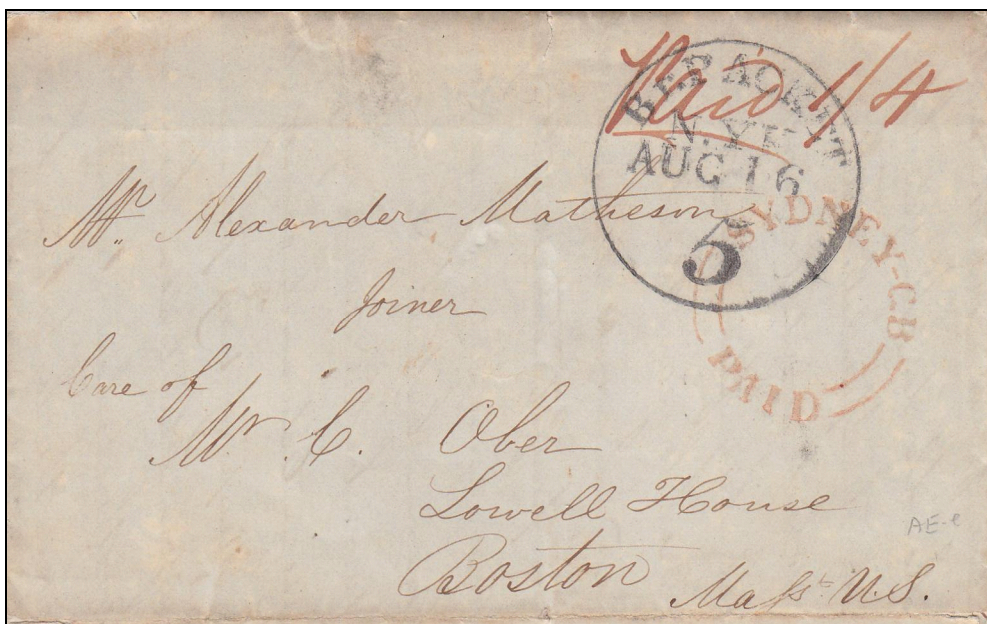 Paid 1/4
BR. PACKET
N. YK
AUG 16
5
SYDNEY-CB
PAID
Mr. Alexander Matheson
Joiner
Care of
Mr. C. Ober
Lowell House
Boston
Mass U.S.
AE-e